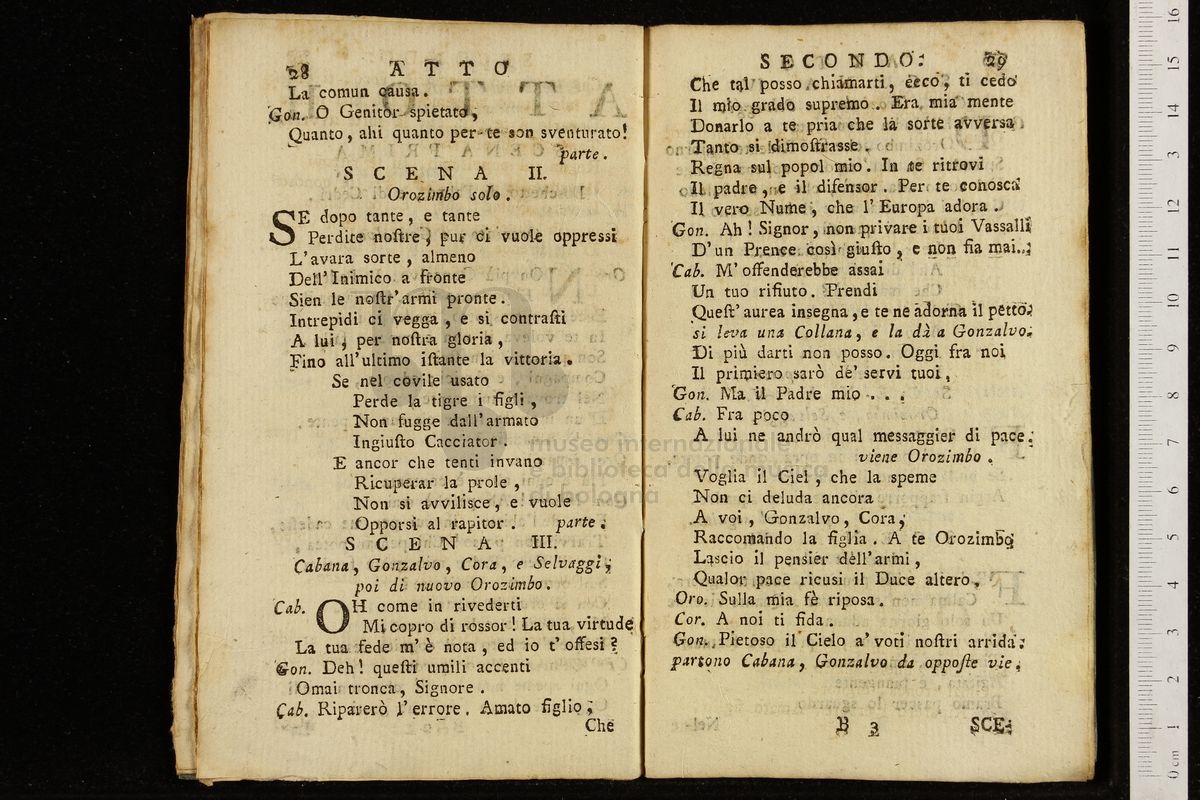 28 ATTO
La comun causa.
Gon. O Genitor spietato,
Quanto, ahi quanto per te son sventurato!
parte.
SCENA II.
Orozimbo solo.
SE dopo tante, e tante
Perdite noſtre, pur ci vuole oppressi
L'avara sorte, almeno
Dell'Inimico a fronte
Sien le noſtr'armi pronte.
Intrepidi ci vegga, e si contraſti
A lui, per noſtra gloria,
Fino all'ultimo iſtante la vittoria.
Se nel covile usato
Perde la tigre i figli,
Non fugge dall'armato
Ingiuſto Cacciator.
E ancor che tenti invano
Ricuperar la prole,
Non si avvilisce, e vuole
Opporsi al rapitor. parte.
SCENA III.
Cabana, Gonzalvo, Cora, e Selvaggi,
poi di nuovo Orozimbo.
Cab. OH come in rivederti
Mi copro di rossor! La tua virtude
La tua fede m'è nota, ed io t'offesi?
Gon. Deh! queſti umili accenti
Omai tronca, Signore.
Cab. Riparerò l'errore. Amato figlio,
Che
SECONDO. 29
Che tal posso chiamarti, ecco, ti cedo
Il mio grado supremo. Era mia mente
Donarlo a te pria che la sorte avversa
Tanto si dimoſtrasse.
Regna sul popol mio. In te ritrovi
Il padre, e il difensor. Per te conosca
Il vero Nume, che l'Europa adora.
Gon. Ah! Signor, non privare i tuoi Vassalli
D'un Prence così giuſto, e non fia mai...
Cab. M'offenderebbe assai
Un tuo rifiuto. Prendi
Queſt'aurea insegna, e te ne adorna il petto.
si leva una Collana, e la dà a Gonzalvo.
Di più darti non posso. Oggi fra noi
Il primiero sarò de' servi tuoi.
Gon. Ma il Padre mio...
Cab. Fra poco
A lui ne andrò qual messaggier di pace.
viene Orozimbo.
Voglia il Ciel, che la speme
Non ci deluda ancora
A voi, Gonzalvo, Cora,
Raccomando la figlia. A te Orozimbo
Lascio il pensier dell'armi,
Qualor pace ricusi il Duce altero.
Oro. Sulla mia fè riposa.
Cor. A noi ti fida.
Gon. Pietoso il Cielo a' voti noſtri arrida.
partono Cabana, Gonzalvo da oppoſte vie.
B 3 SCE-
museo internazionale
e biblioteca della musica
di bologna
0 cm 1 2 3 4 5 6 7 8 9 10 11 12 13 14 15 16